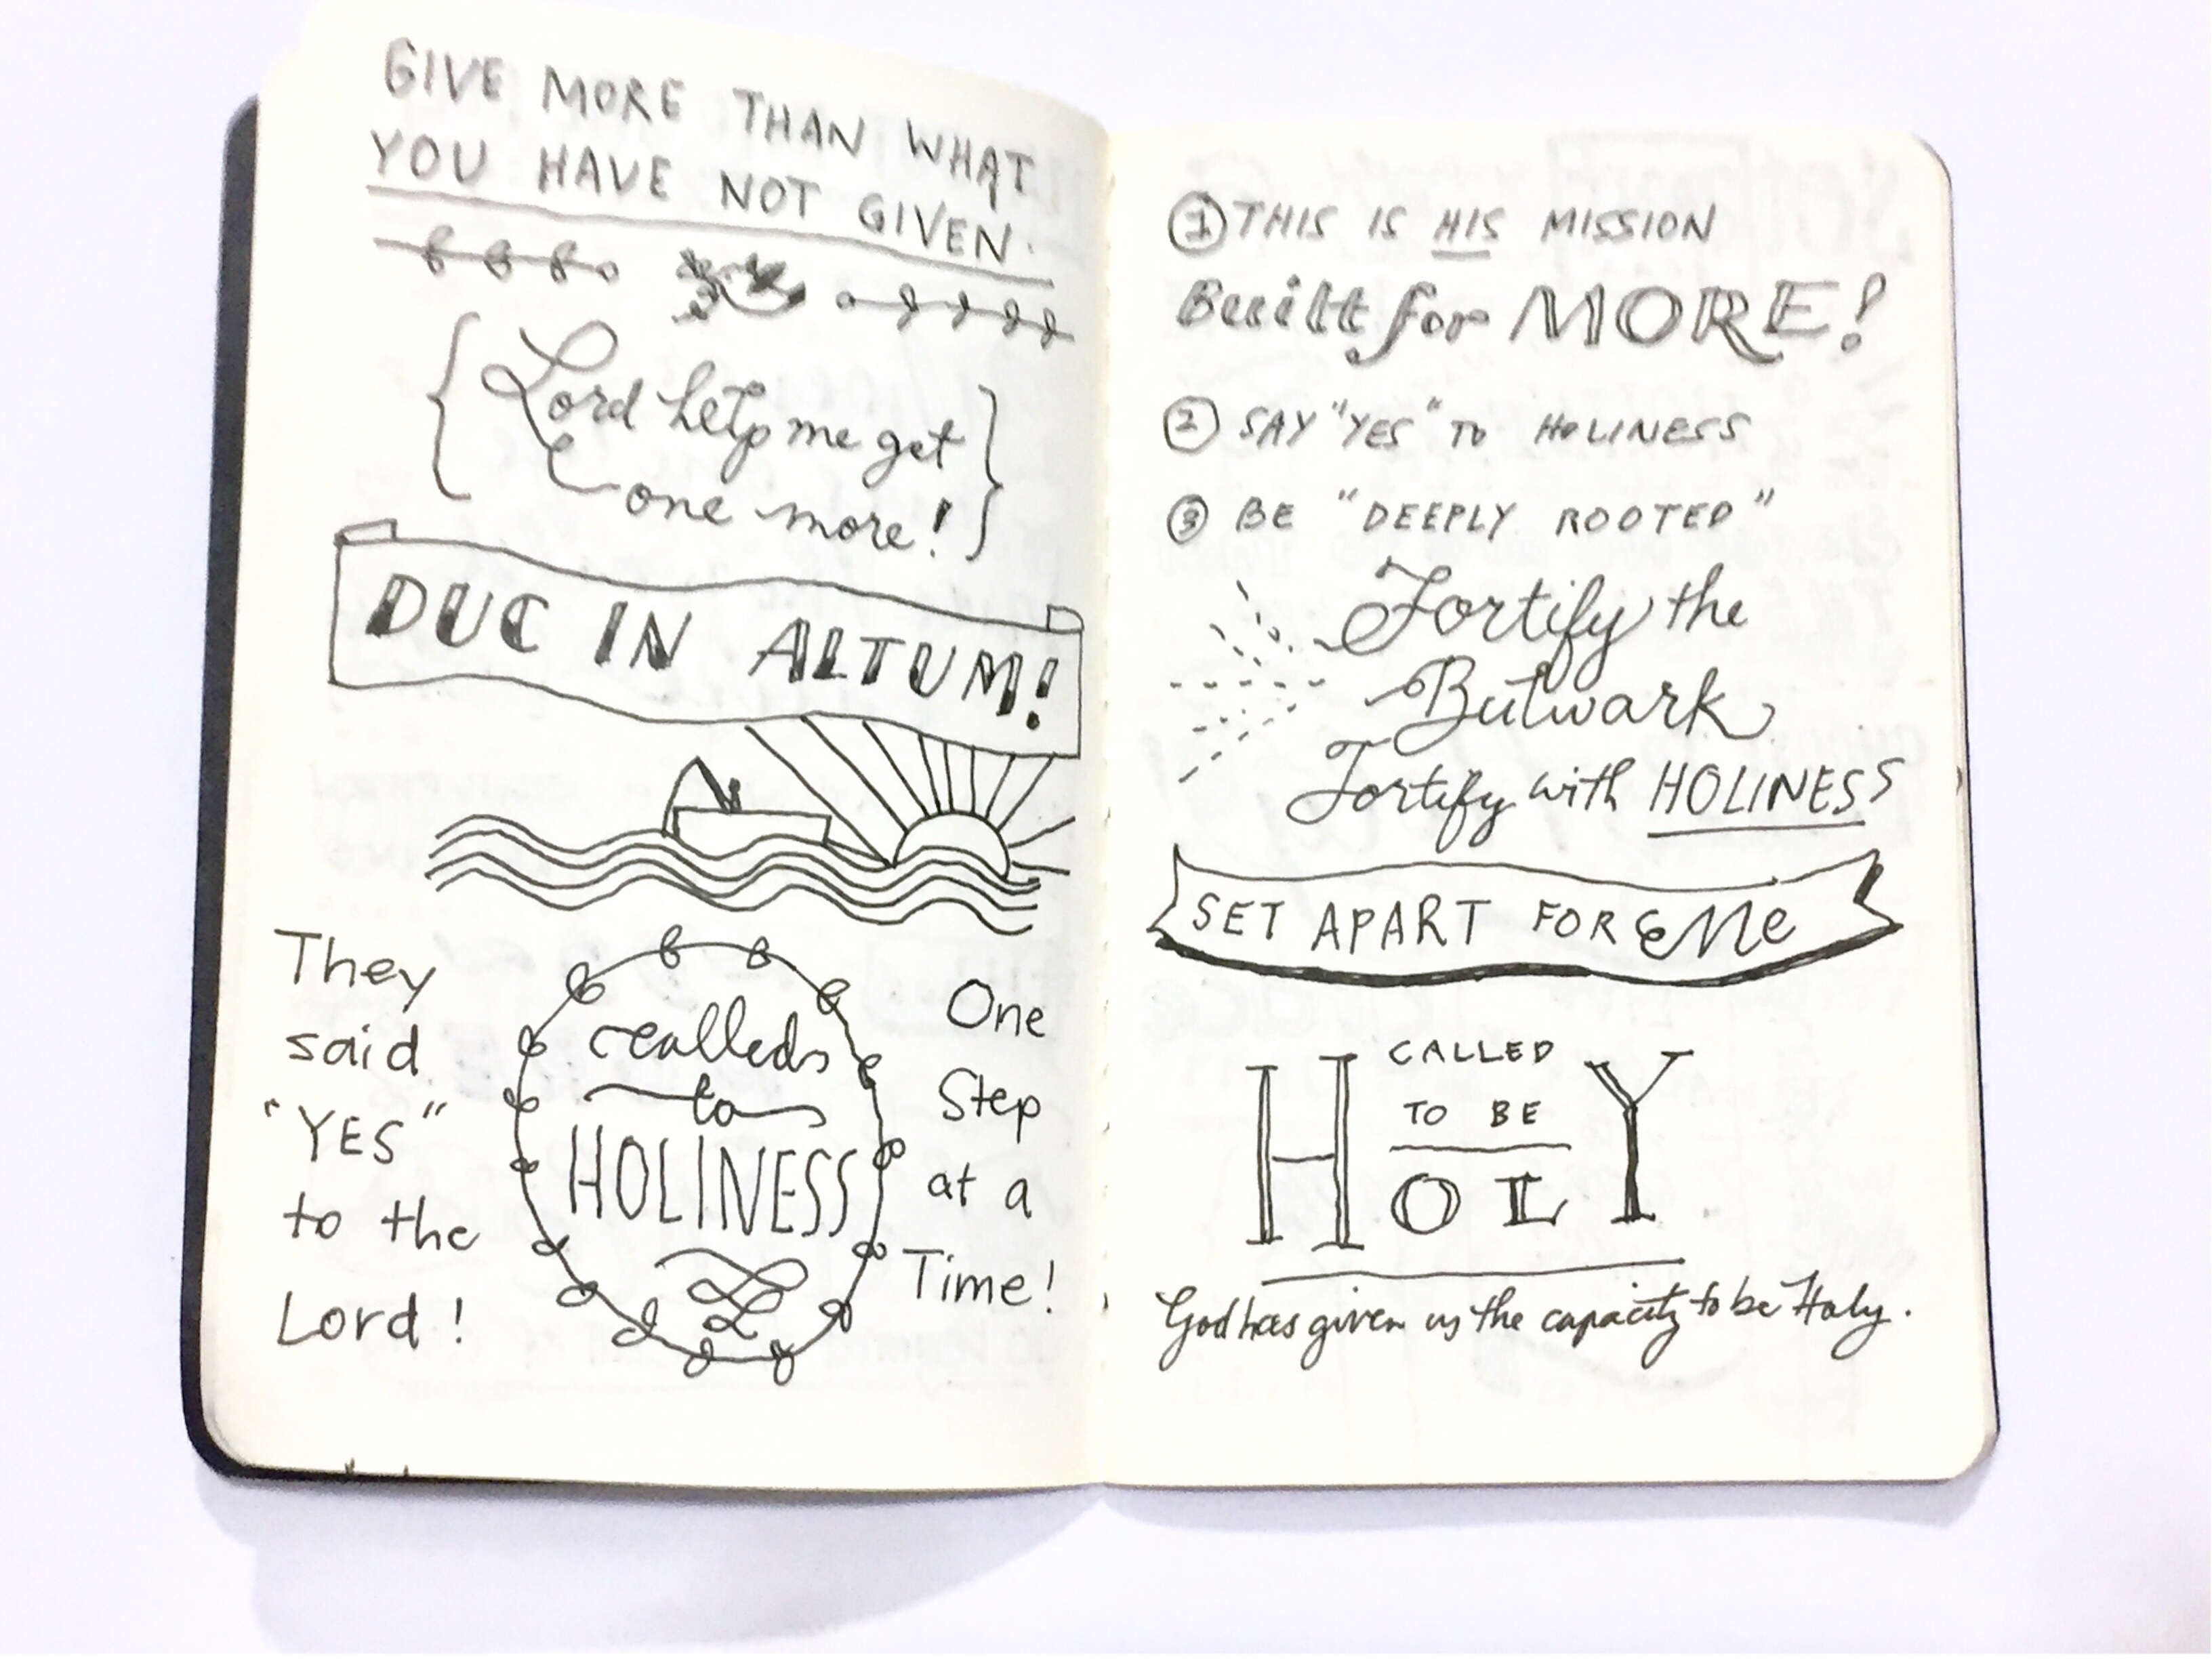 GIVE MORE THAN WHAT
YOU HAVE NOT GIVEN.
{ Lord help me get
one more! }
DUC IN ALTUM!
They
said
"YES"
to the
Lord!
called
to
HOLINESS
One
Step
at a
Time!
① THIS IS HIS MISSION
Built for MORE!
② SAY "YES" TO HOLINESS
③ BE "DEEPLY ROOTED"
Fortify the
Bulwark
Fortify with HOLINESS
SET APART FOR Me
CALLED
TO BE
HOLY
God has given us the capacity to be Holy.